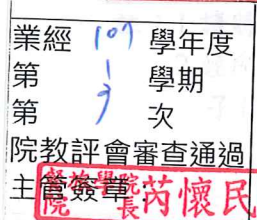 業經 107 學年度
第 1 學期
第 7 次
院教評會審查通過
主管簽章：
餐旅學院院長 芮懷民